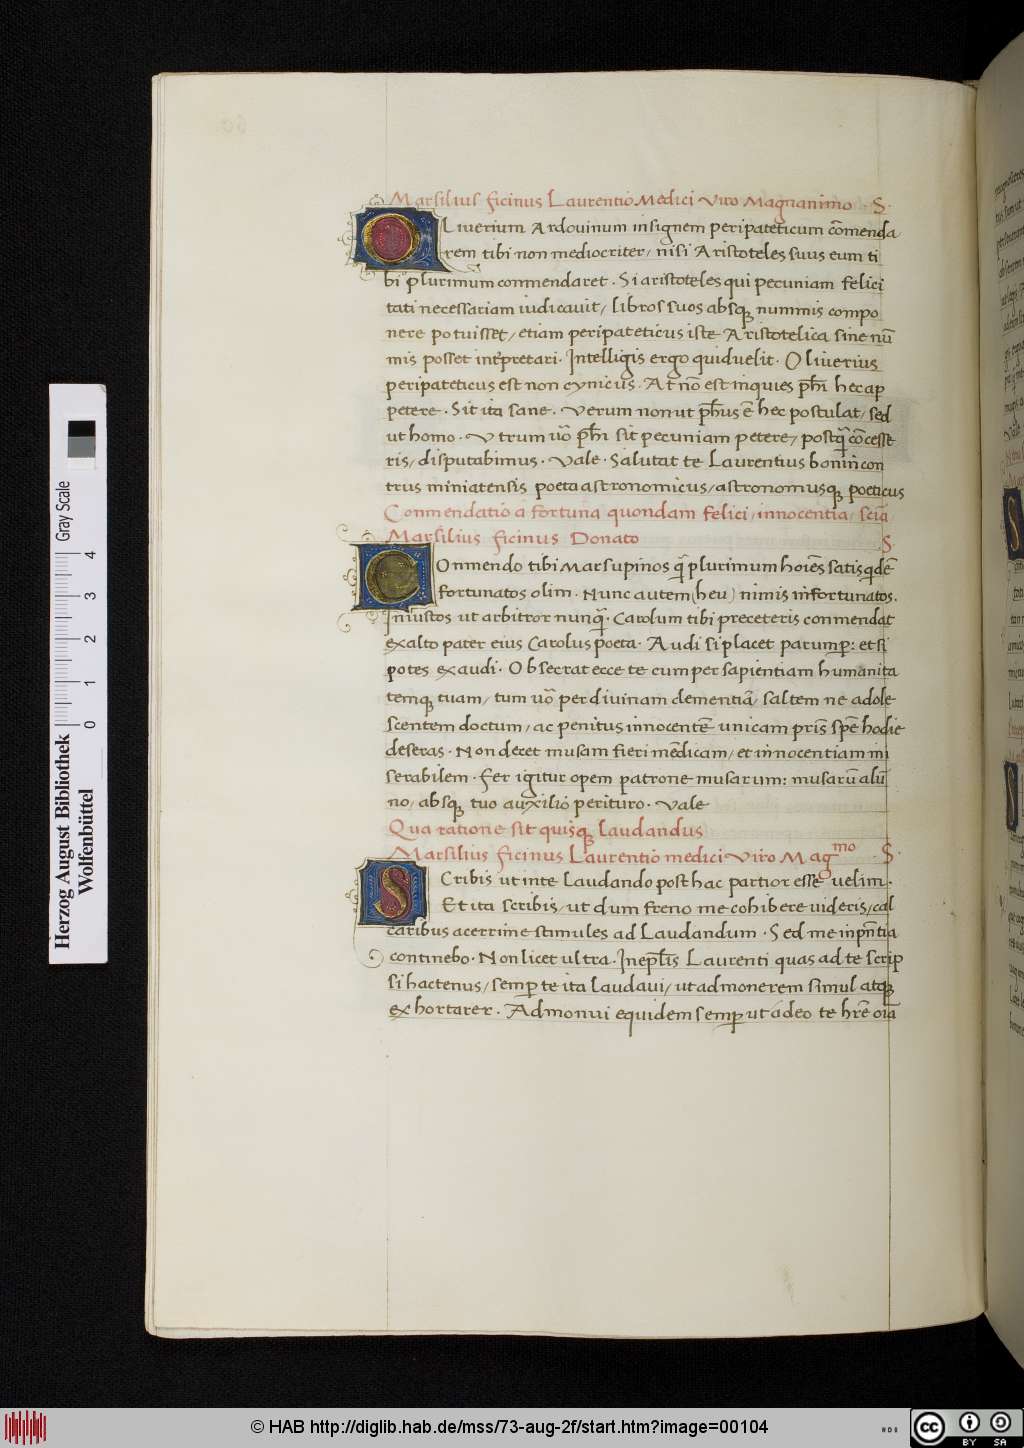 Marsilius ficinus Laurentio Medici viro Magnanimo · S ·
OLiuerium Ardouinum insignem peripateticum cōmenda
rem tibi non mediocriter, nisi Aristoteles suus eum ti
bi plurimum conmendaret · Si aristoteles qui pecuniam felici
tati necessariam iudicauit, libros suos absq; nummis compo
nere potuisset, etiam peripateticus iste Aristotelica sine nū
mis posset interpretari · Intelligis ergo quid uelit · Oliuerius
peripateticus est non cynicus · At nō est inquies phī hec ap
petere · Sit ita sane · Verum non ut phūs ē hec postulat, sed
ut homo · Vtrum uō phī sit pecuniam petere, postq̄ cōcesse
ris, disputabimus · Vale · Salutat te Laurentius bonin con
trus miniatensis poeta astronomicus, astronomusq; poeticus
Conmendatio a fortuna quondam felici, innocentia, sciā
Marsilius ficinus Donato S ·
COnmendo tibi Marsupinos q̄ plurimum hoīes satis qidē
fortunatos olim · Nunc autem (heu) nimis infortunatos ·
Iniustos ut arbitror nunq̄ · Carolum tibi preceteris conmendat
ex alto pater eius Carolus poeta · Audi si placet parump̱: et si
potes exaudi · Obsecrat ecce te cum per sapientiam humanita
temq; tuam, tum uō per diuinam clementiā, saltem ne adole
scentem doctum, ac penitus innocentē unicam pris̄ spē hodie
deseras · Non decet musam fieri medicam, et innocentiam mi
serabilem · Fer igitur opem patrone musarum: musarū alū
no, absq; tuo auxilio perituro · Vale
Qua ratione sit quisq; laudandus
Marsilius ficinus Laurentio medici Viro Magmo · S ·
SCribis ut in te laudando post hac partior esse uelim ·
Et ita scribis, ut dum freno me cohibere uideris, cal
caribus acerrime stimules ad Laudandum · Sed me inpn̄tia
continebo · Non licet ultra · In epl̄is Laurenti quas ad te scrip
si hactenus, semp̱ te ita laudaui, ut admonerem simul atq;
exhortarer · Admonui equidem semp̱ ut adeo te hr̄e oīa
Herzog August Bibliothek
Wolfenbüttel
Gray Scale
0 1 2 3 4
© HAB http://diglib.hab.de/mss/73-aug-2f/start.htm?image=00104
cc BY SA